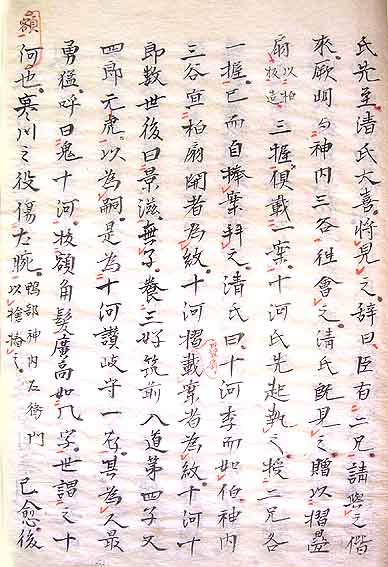 氏先至清氏大喜將見之辞曰臣有二兄請與之偕
來厥嗣与神内三谷往會之清氏既見之贈以摺疊
扇以柏板造三握俱載一案十河氏先起執之授二兄各
一握已而自捧案拜之清氏曰十河季而如伯神内
三谷宜柏扇開者為紋十河摺載案者為紋十河十
即数世後曰景滋無子養三好筑前入道第四子又
四郎元虎以為嗣是為十河讃岐守一存其為人最
勇猛呼曰鬼十河抜額角髪廣高如几字世謂之十
額
河也寒川之役傷左腕鴨部神内左衛門以捨揞之已愈後